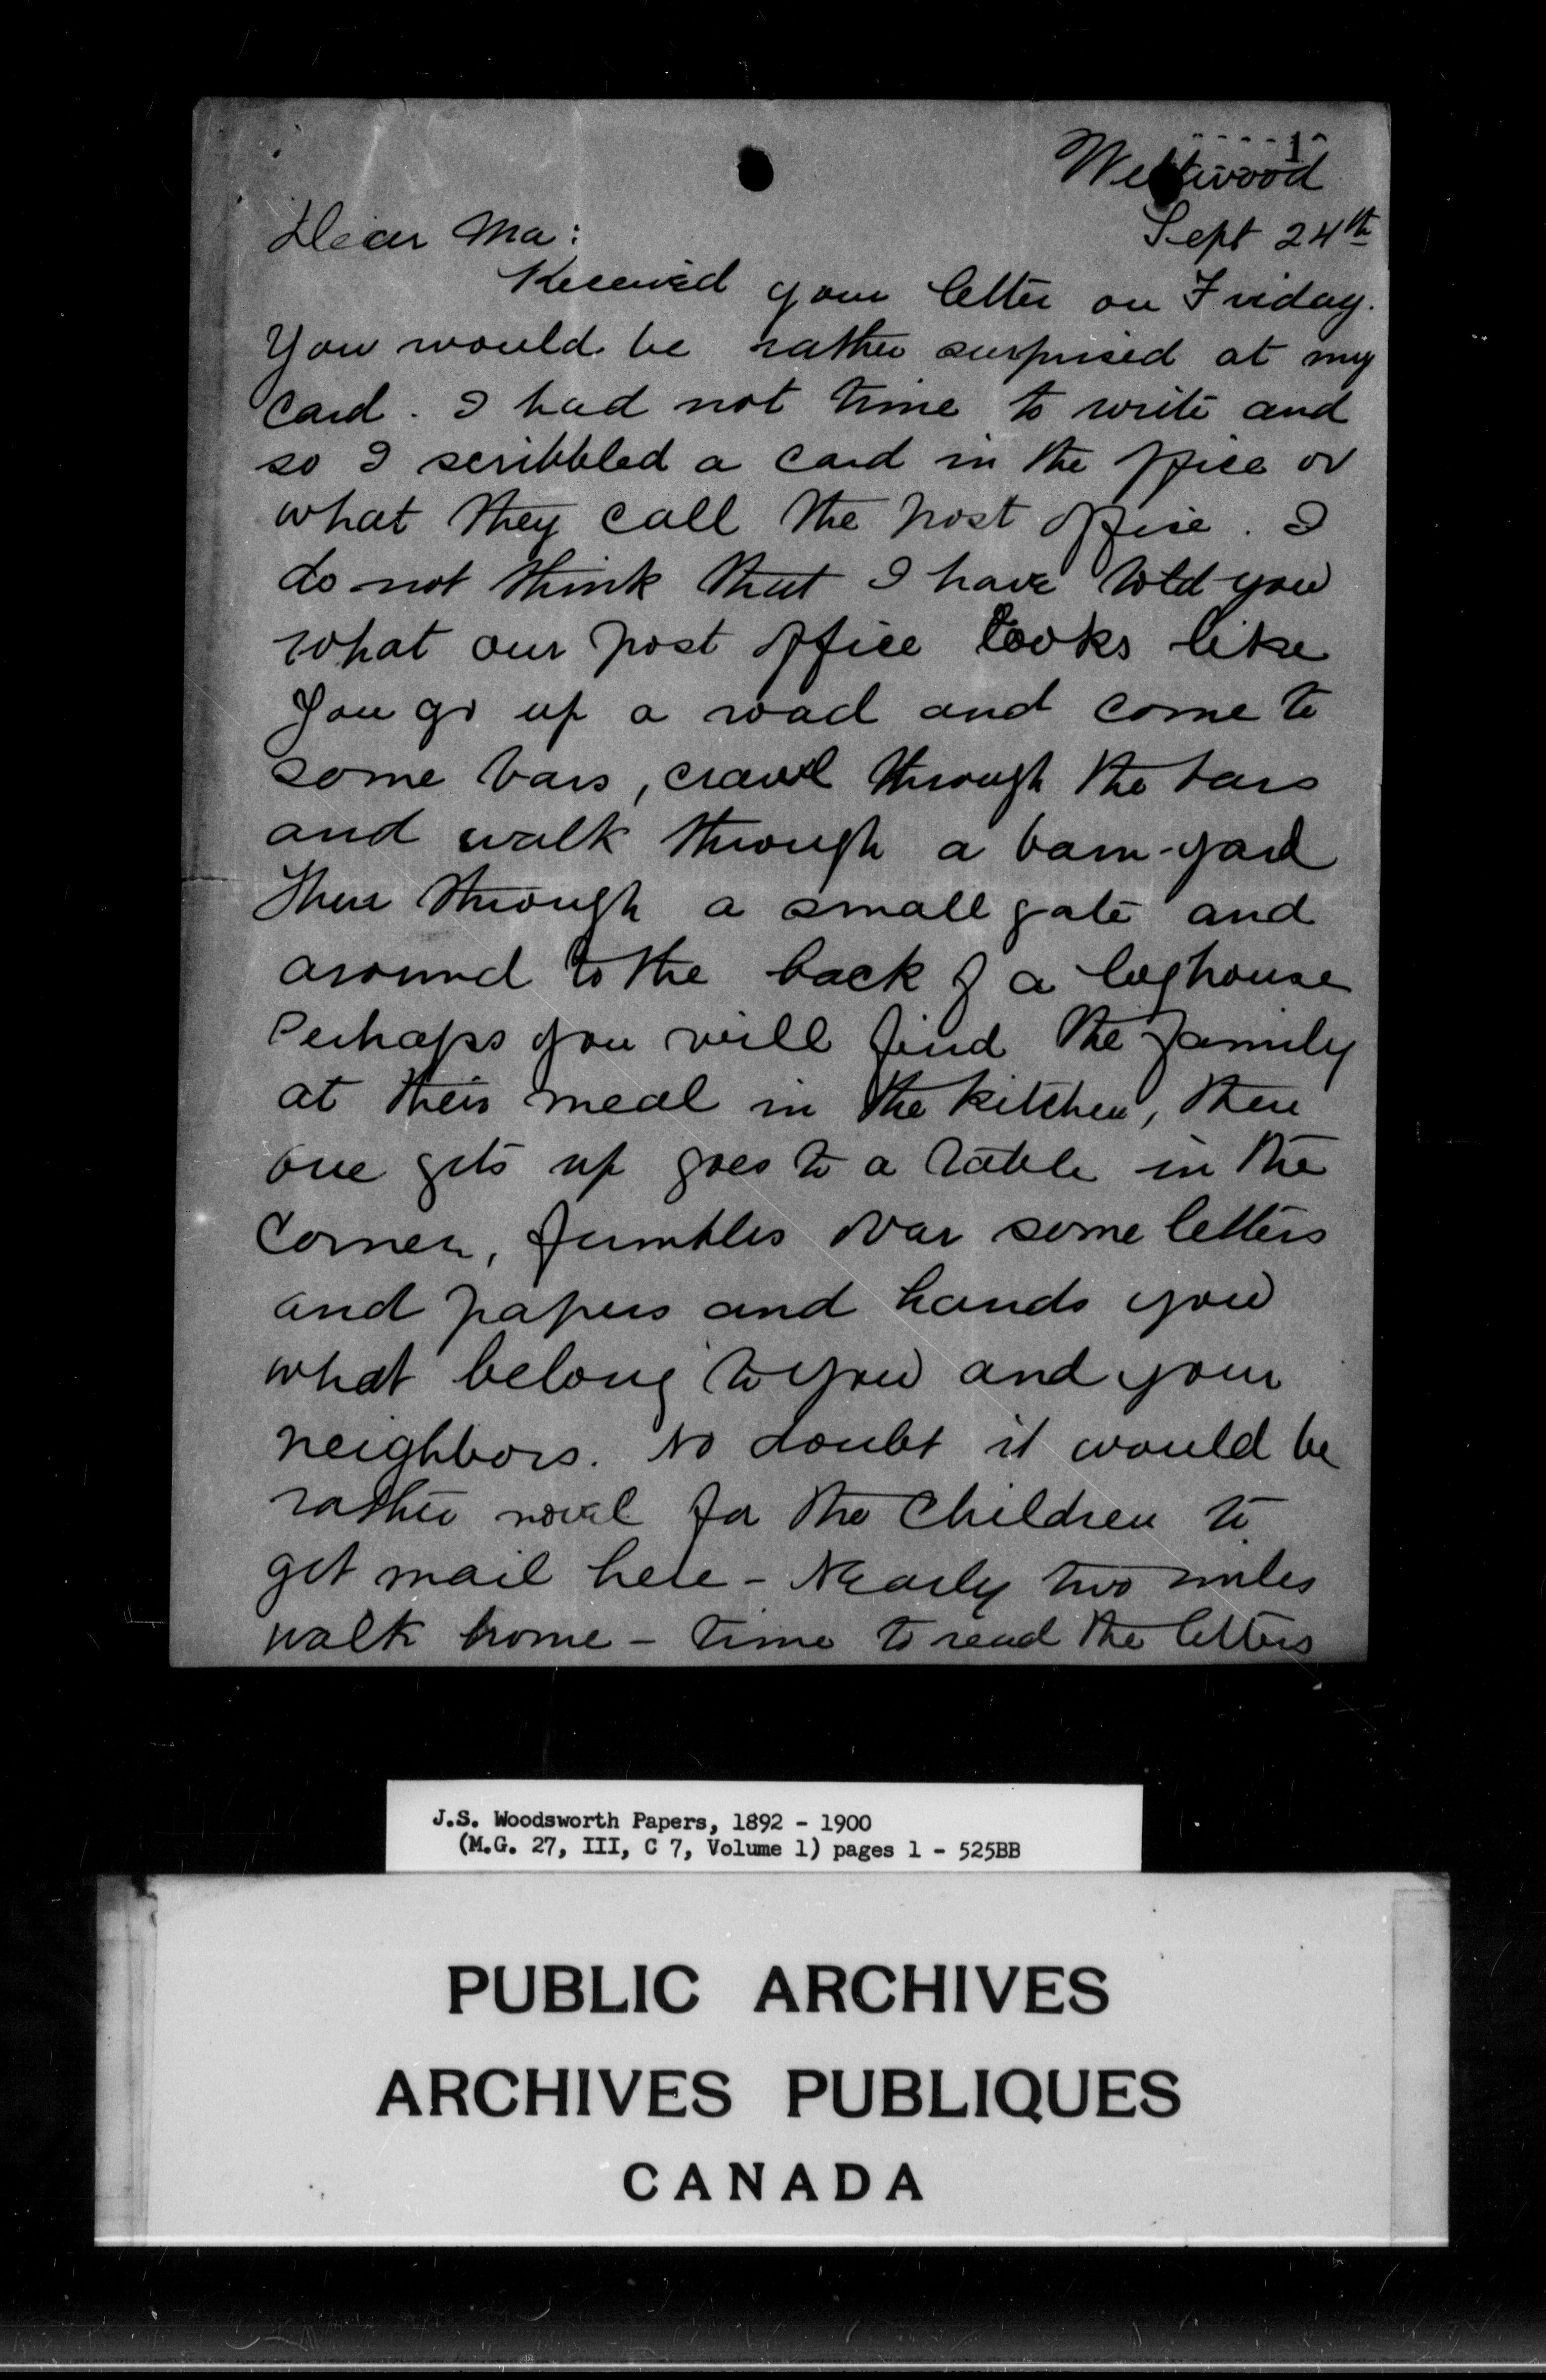 1
Westwood
Sept 24th
Dear Ma:
Received your letter on Friday.
You would be rather surprised at my
card. I had not time to write and
so I scribbled a card in the office or
what they call the post office. I
do not think that I have told you
what our post office looks like
You go up a road and come to
some bars, crawl through the bars
and walk through a barn-yard
then through a small gate and
around to the back of a loghouse
Perhaps you will find the family
at their meal in the kitchen, then
one gets up goes to a table in the
corner, fumbles over some letters
and papers and hands you
what belong to you and your
neighbors. No doubt it would be
rather novel for the Children to
get mail here - Nearly two miles
walk home - time to read the letters
J.S. Woodsworth Papers, 1892 - 1900
(M.G. 27, III, C 7, Volume 1) pages 1 - 525BB
PUBLIC ARCHIVES
ARCHIVES PUBLIQUES
CANADA